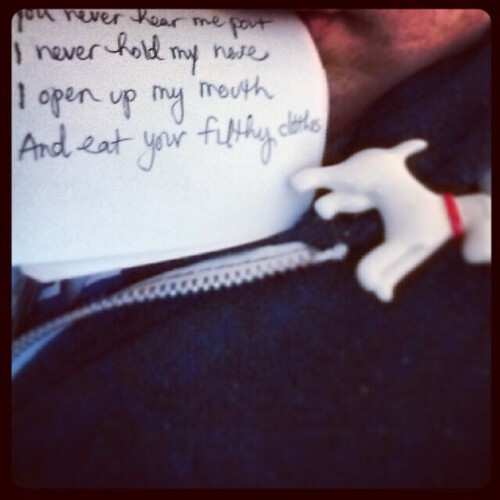 you never hear me pout
I never hold my nose
I open up my mouth
And eat your filthy clothes